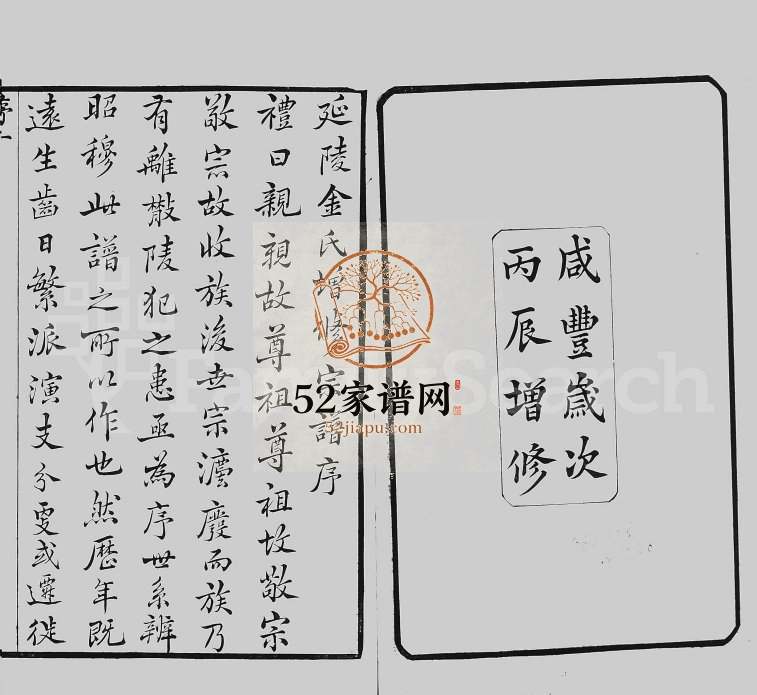 咸豐歲次
丙辰增修
延陵金氏增修宗譜序
禮曰親親故尊祖尊祖故敬宗
敬宗故收族後世宗灋廢而族乃
有離散陵犯之患亟為序世系辨
昭穆此譜之所以作也然歷年既
遠生齒日繁派演支分更或遷徙
52家谱网
52jiapu.com
FamilySearch